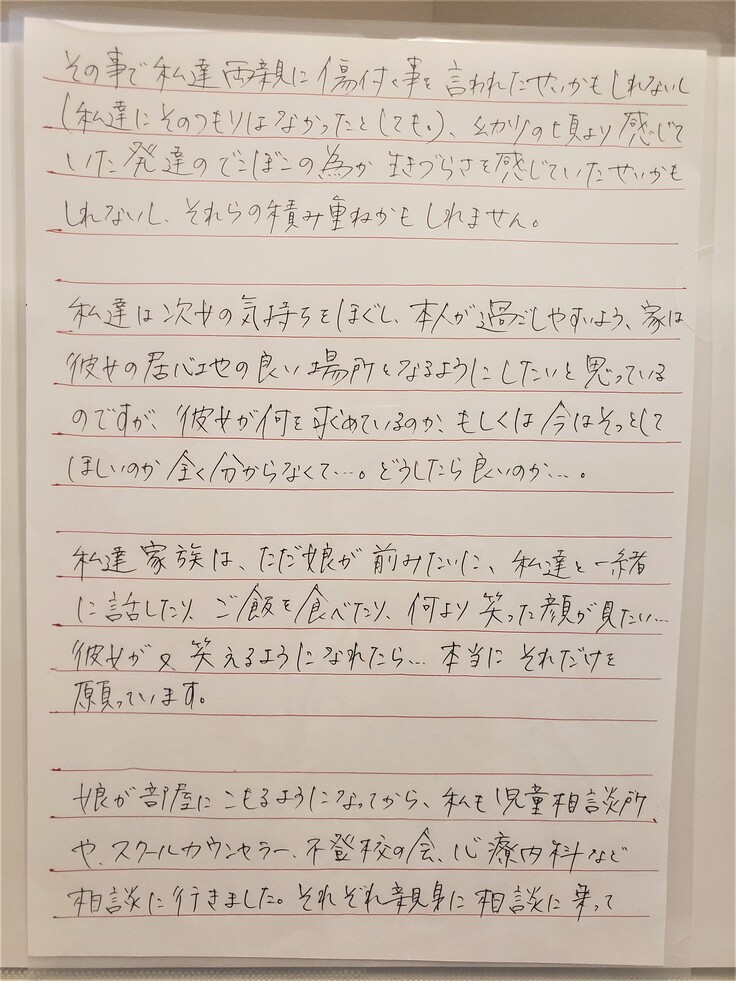 その事で私達両親に傷付く事を言われたせいかもしれないし
(私達にそのつもりはなかったとしても。)、幼少の頃より感じて
いた発達のでこぼこの為か生きづらさを感じていたせいかも
しれないし、それらの積み重ねかもしれません。
私達は次女の気持ちをほぐし、本人が過ごしやすいよう、家は
彼女の居心地の良い場所となるようにしたいと思っている
のですが、彼女が何を求めているのか、もしくは今はそっとして
ほしいのか全く分からなくて…。どうしたら良いのか…。
私達家族は、ただ娘が前みたいに、私達と一緒
に話したり、ご飯を食べたり、何より笑った顔が見たい…
彼女が又、笑えるようになれたら…本当にそれだけを
願っています。
娘が部屋にこもるようになってから、私も児童相談所、
や、スクールカウンセラー、不登校の会、心療内科など
相談に行きました。それぞれ親身に相談に乗って